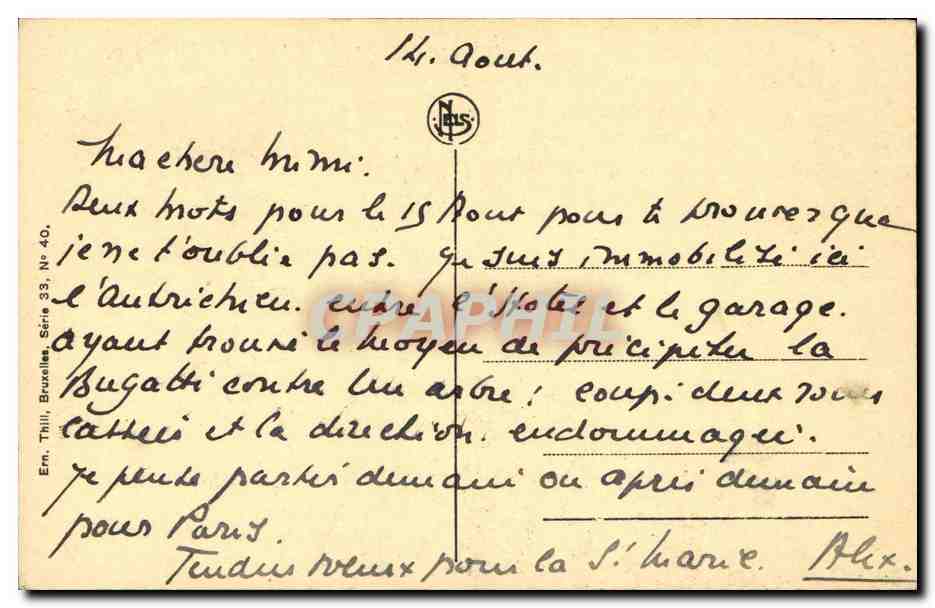 14. Aout.
NELS
Ma chere Mimi.
Deux mots pour le 15 Aout pour te prouver que
je ne t'oublie pas. Je suis immobilisé ici
entre l'Hotel et le garage.
CPAPHIL
ayant trouvé le moyen de précipiter la
Bugatti contre un arbre! coupé deux roues
cassées et la direction endommagée.
Je pense partir demain ou après demain
pour Paris.
Tendres voeux pour la St Marie. Alex.
Ern. Thill, Bruxelles. Série 33, No 40.